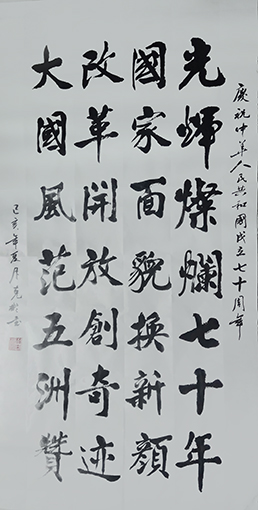 慶祝中华人民共和國成立七十周年
光輝燦爛七十年
國家面貌換新顏
改革開放創奇迹
大國風范五洲贊
己亥年